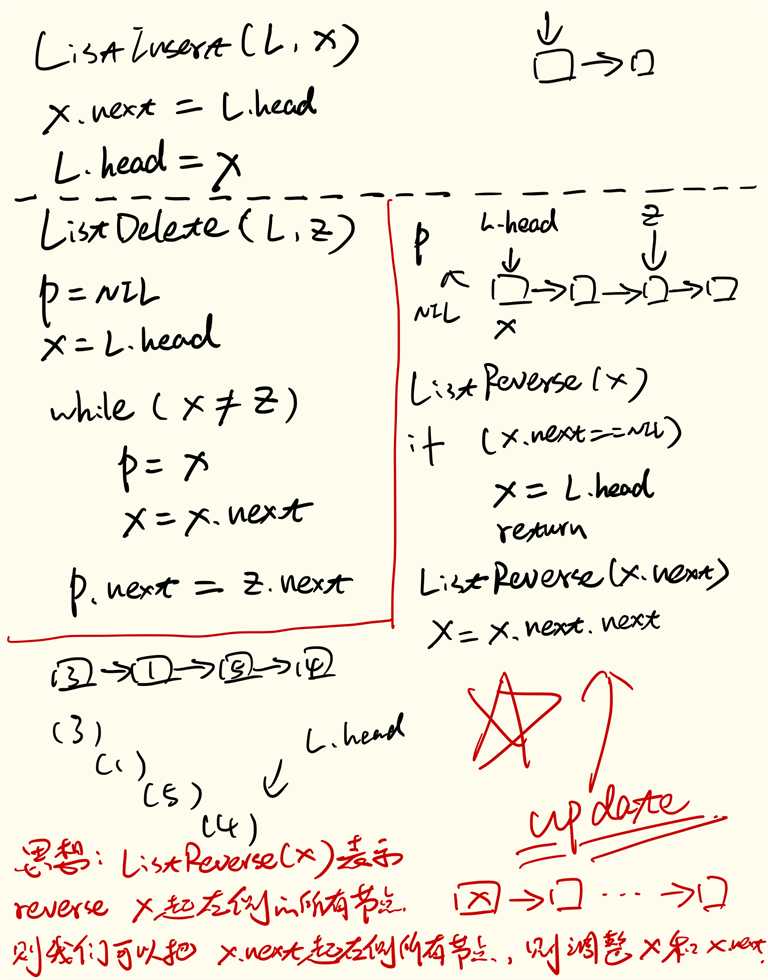 ListInsert(L, x)
x.next = L.head
L.head = x
ListDelete(L, z)
p = NIL
x = L.head
while (x ≠ z)
p = x
x = x.next
p.next = z.next
p
L.head
z
NIL
x
ListReverse(x)
if (x.next==NIL)
x = L.head
return
ListReverse(x.next)
x = x.next.next
update
3 → 1 → 5 → 4
(3)
(1)
(5)
(4)
L.head
思想: ListReverse(x)表示
reverse x起右侧的所有节点.
则我们可以把 x.next起右侧所有节点, 则调整 x和 x.next.
x → □ ... → □